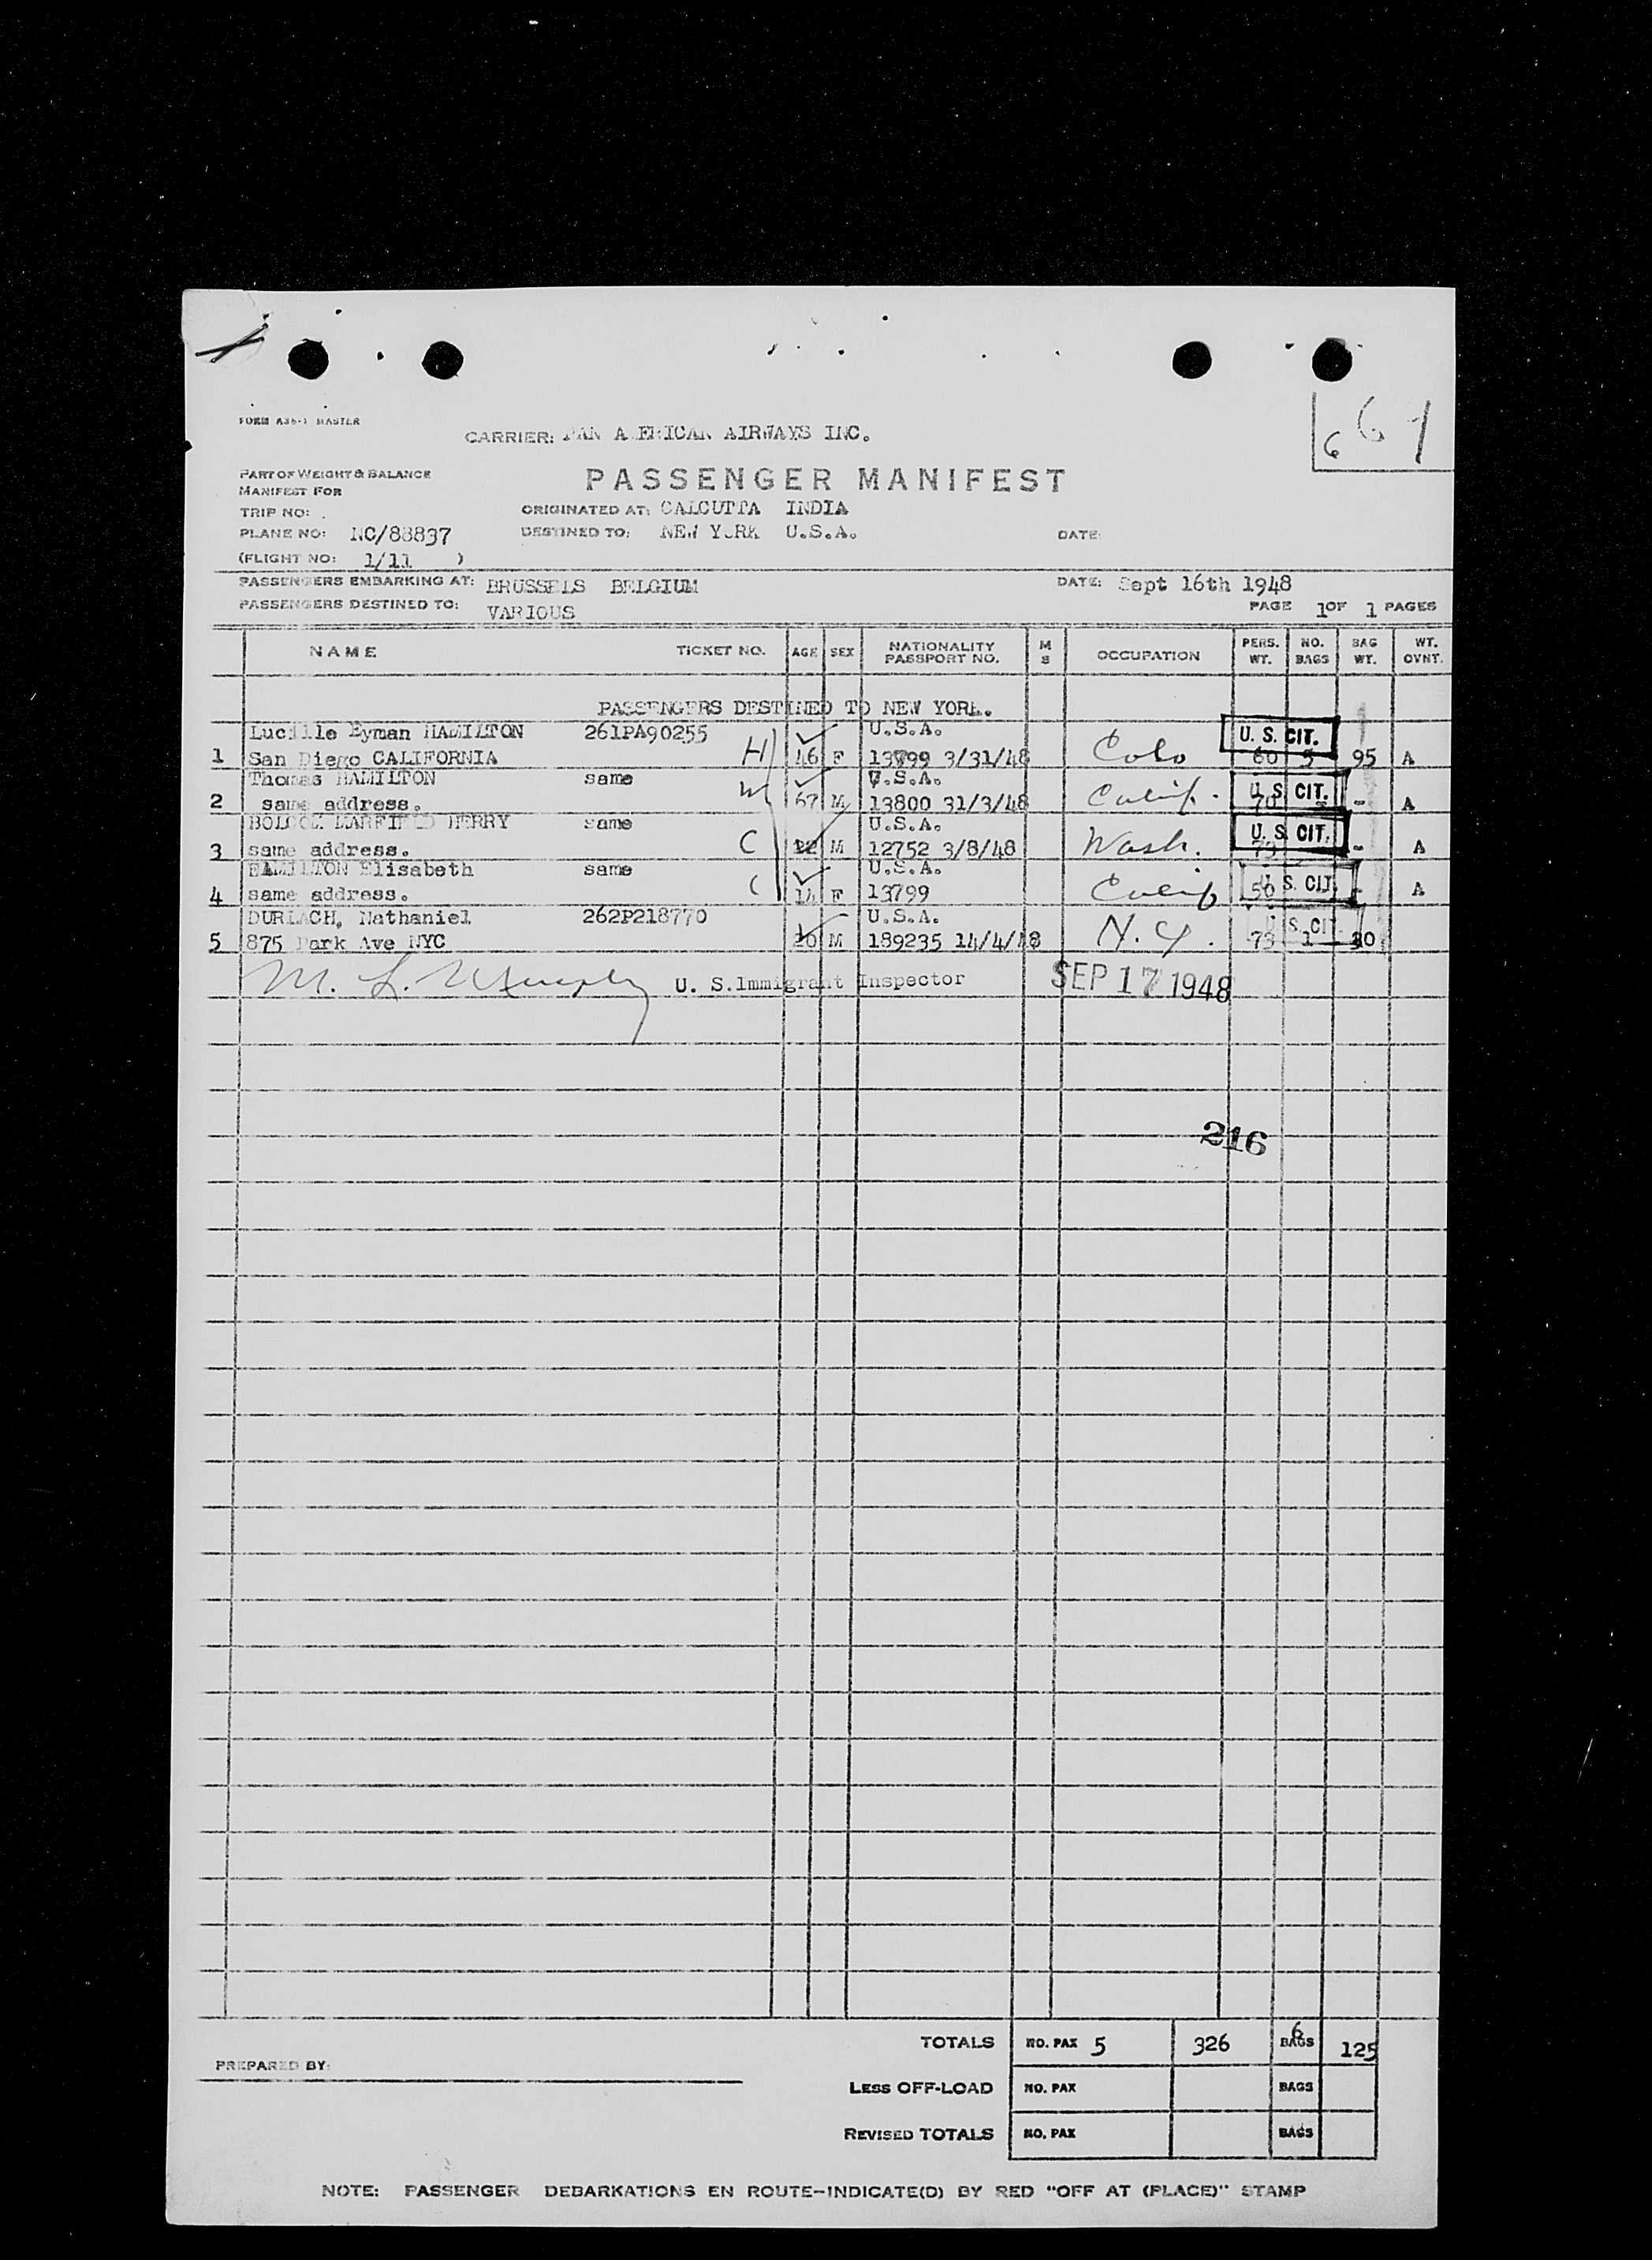 661
FORM A36-1 MASTER
CARRIER: PAN A ERICAN AIRWAYS INC.
PART OF WEIGHT & BALANCE
MANIFEST FOR
PASSENGER MANIFEST
TRIP NO: .
ORIGINATED AT: CALCUTTA INDIA
PLANE NO: NC/88837
DESTINED TO: NEW YORK U.S.A.
DATE:
(FLIGHT NO: 1/11 )
PASSENGERS EMBARKING AT: BRUSSELS BELGIUM
DATE: Sept 16th 1948
PASSENGERS DESTINED TO: VARIOUS
PAGE 1 OF 1 PAGES
NAME TICKET NO. AGE SEX NATIONALITY PASSPORT NO. M S OCCUPATION PERS. WT. NO. BAGS BAG WT. WT. OVNT.
PASSENGERS DESTINED TO NEW YORK.
Lucille Eyman HAMILTON 261PA90255 U.S.A. U. S. CIT.
1 San Diego CALIFORNIA H 46 F 13799 3/31/48 Colo 60 5 95 A
Thomas HAMILTON same U.S.A. U. S. CIT.
2 same address. W 67 M 13800 31/3/48 Calif. 70 - - A
HERRY same U.S.A. U. S. CIT.
3 same address. C 22 M 12752 3/8/48 Wash. 73 - A
HAMILTON Elisabeth same U.S.A. U. S. CIT.
4 same address. C 14 F 13799 Calif 50 - A
DURLACH, Nathaniel 262P218770 U.S.A. U. S. CIT.
5 875 Park Ave NYC M 189235 14/4/48 N.Y. 73 1 30
M. L. Murphy U. S. Immigrant Inspector SEP 17 1948
216
TOTALS NO. PAX 5 326 6 BAGS 125
PREPARED BY:
LESS OFF-LOAD NO. PAX BAGS
REVISED TOTALS NO. PAX BAGS
NOTE: PASSENGER DEBARKATIONS EN ROUTE-INDICATE(D) BY RED "OFF AT (PLACE)" STAMP